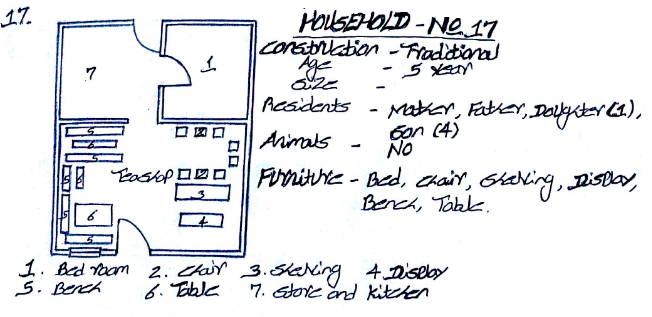 17.
HOUSEHOLD - No 17
Construction - Traditional
Age - 5 year
Size -
Residents - Mother, Father, Doughter (1),
Son (4)
Animals - No
Furniture - Bed, chair, Shelving, Display,
Bench, Table.
7
1
5
2
6
5
Teashop
5
6
2
3
5
6
4
5
1. Bed room 2. chair 3. Shelving 4. Display
5. Bench 6. Table 7. Store and kitchen